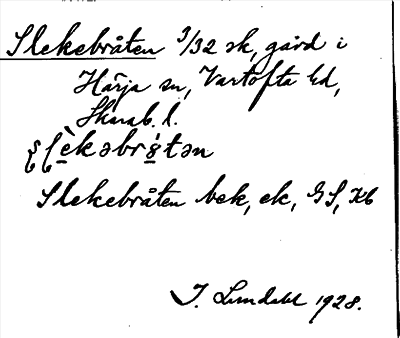 Slekebråten 3/32 sk, gård i
Härja sn, Vartofta hd,
Skarab. l.
Slekebråten bek, ek, GS, Kb
J. Lundahl 1928.